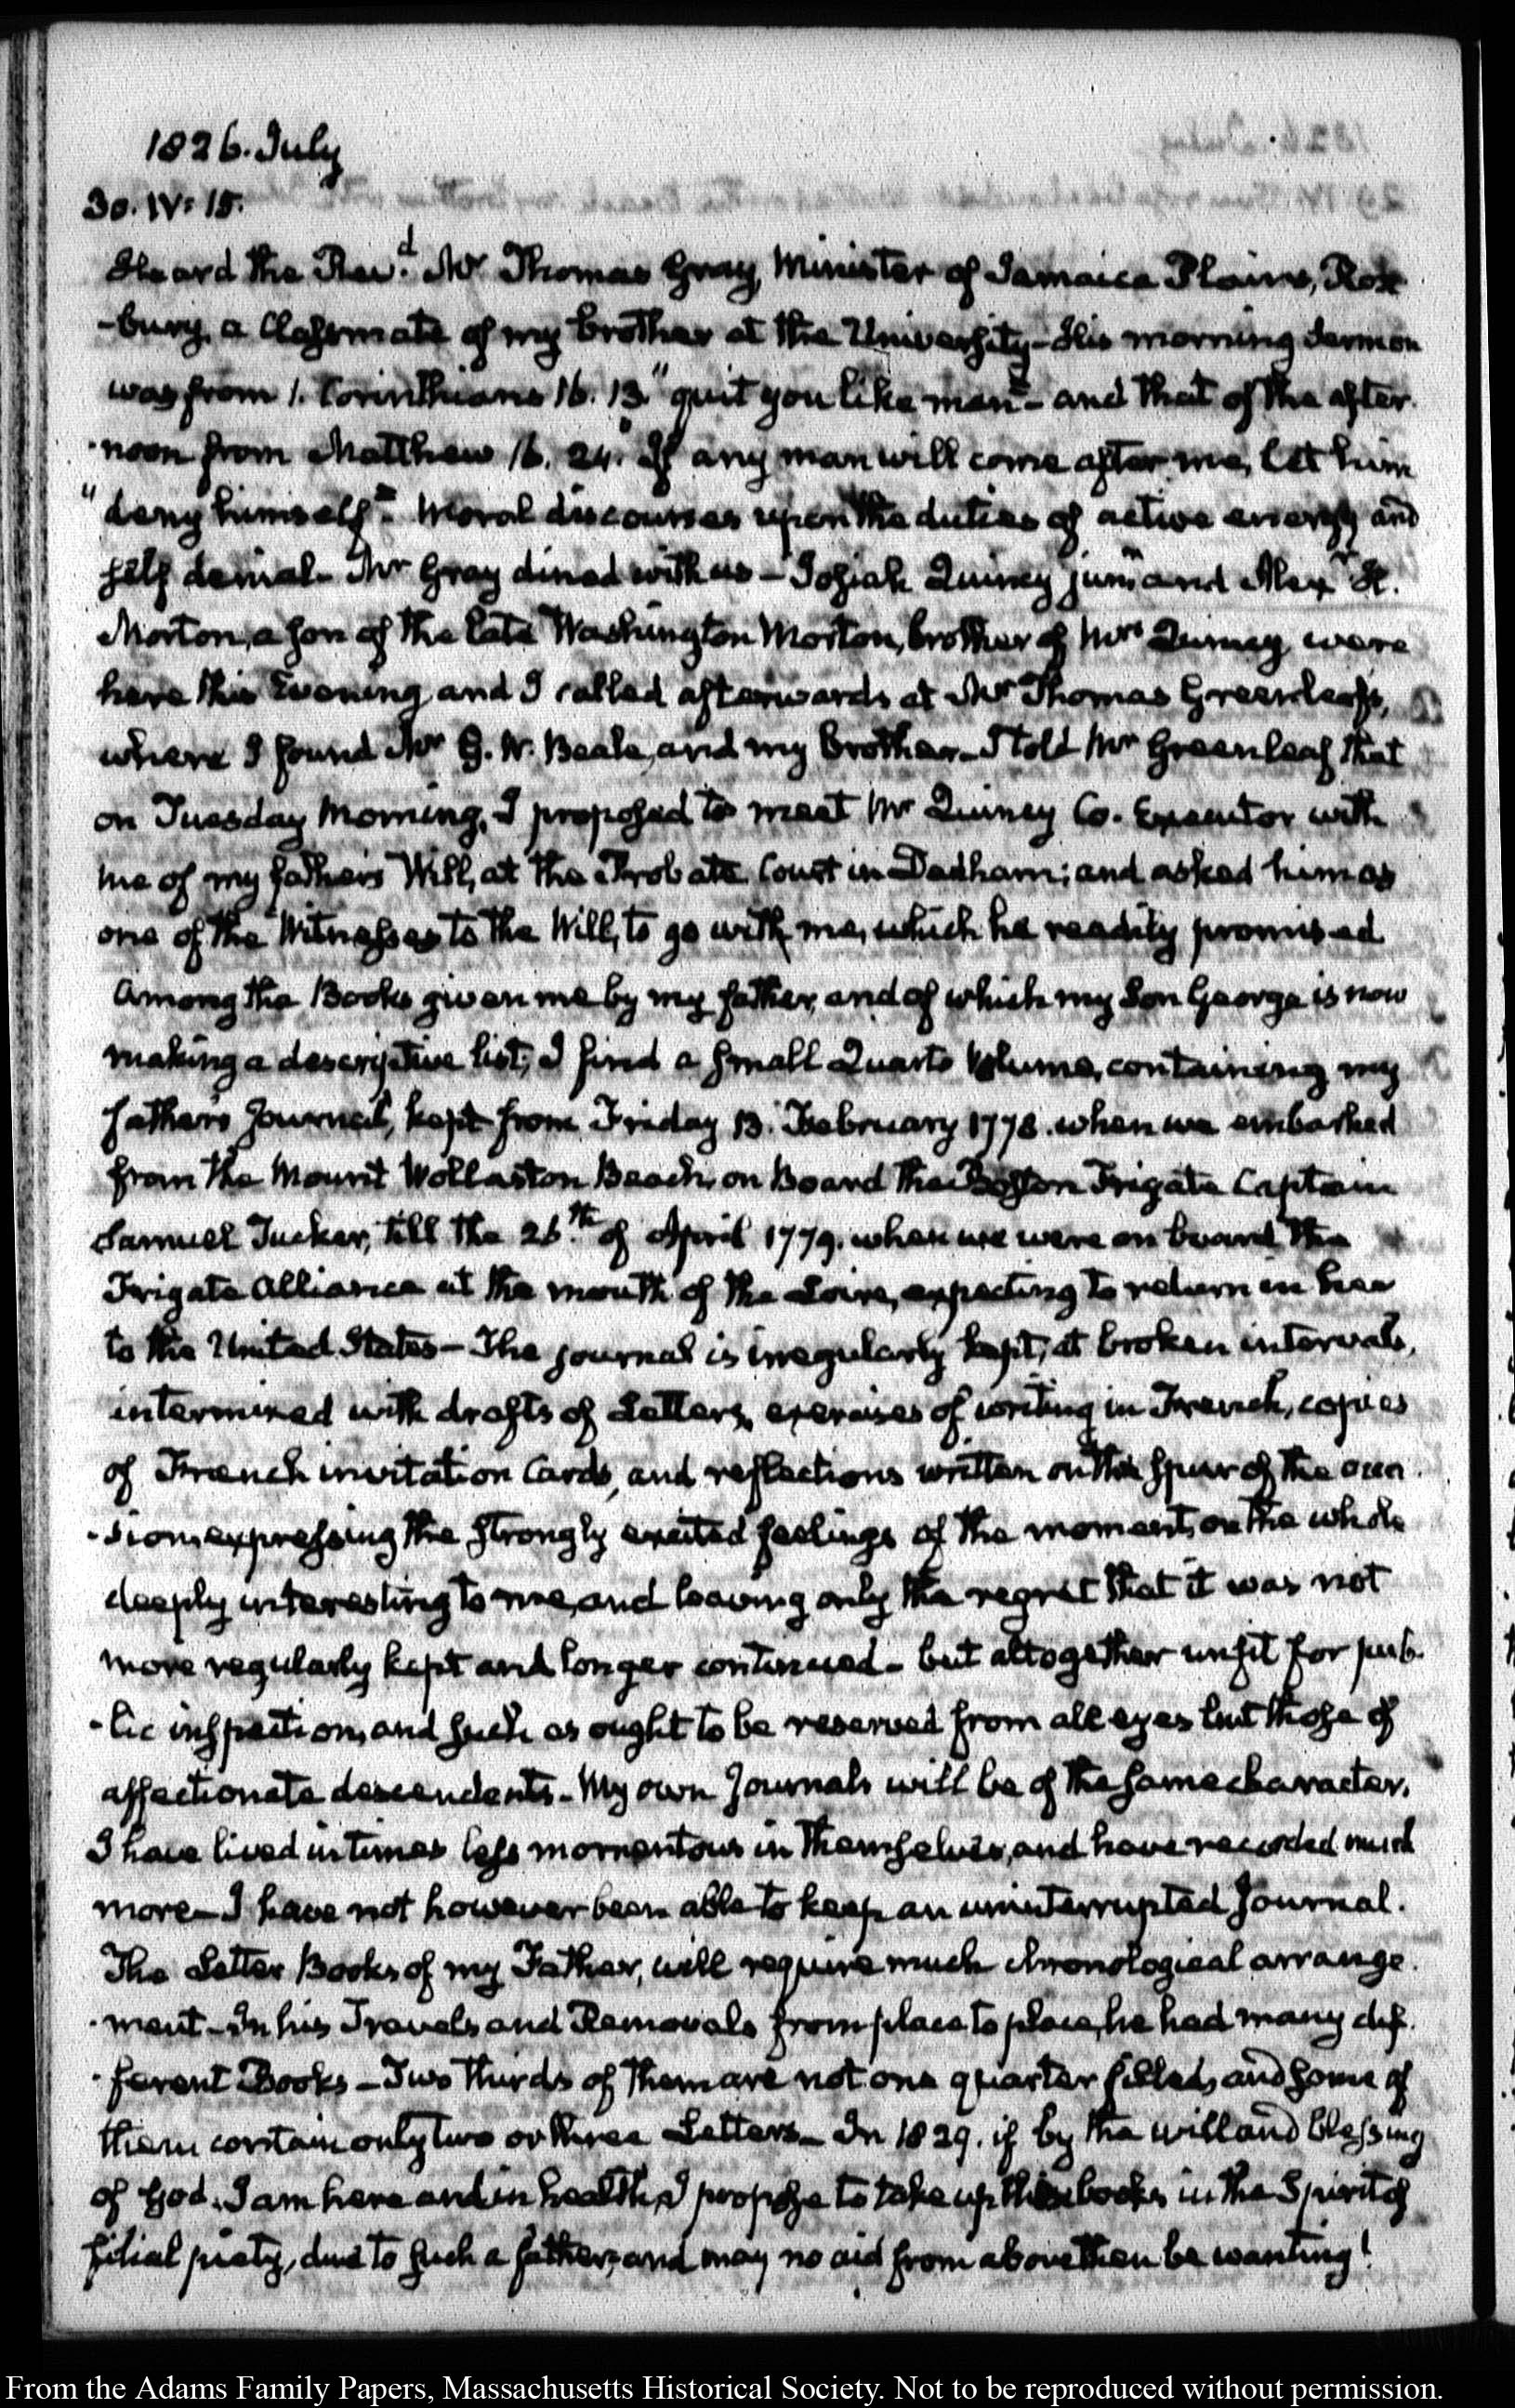 1826. July
30. IV: 15.
Heard the Rev.d Mr Thomas Gray, Minister of Jamaica Plains, Rox
-bury, a Classmate of my brother at the University - His morning Sermon
was from 1. Corinthians 16. 13. "quit you like men" - and that of the after
-noon from Matthew 16. 24. "If any man will come after me, let him
"deny himself" - Moral discourses upon the duties of active energy and
self denial - Mr Gray dined with us - Josiah Quincy junr and Alexr H.
Morton, a son of the late Washington Morton, brother of Mrs Quincy, were
here this Evening, and I called afterwards at Mr Thomas Greenleaf's,
where I found Mr G. W. Beale, and my brother - I told Mr Greenleaf that
on Tuesday Morning, I proposed to meet Mr Quincy Co. Executor with
me of my father's Will, at the Probate Court in Dedham; and asked him as
one of the Witnesses to the Will, to go with me, which he readily promised
Among the Books given me by my father, and of which my Son George is now
making a descriptive list; I find a small Quarto Volume, containing my
father's Journal, kept from Friday 13. February 1778. when we embarked
from the Mount Wollaston Beach, on Board the Boston Frigate Captain
Samuel Tucker, till the 26.th of April 1779. when we were on board the
Frigate Alliance at the mouth of the Loire, expecting to return in her
to the United States - The journal is irregularly kept, at broken intervals,
intermixed with drafts of Letters, exercises of writing in French, copies
of French invitation Cards, and reflections written on the spur of the occa
-sion, expressing the strongly excited feelings of the moment, on the whole
deeply interesting to me, and leaving only the regret that it was not
more regularly kept and longer continued - but altogether unfit for pub
-lic inspection, and such as ought to be reserved from all eyes but those of
affectionate descendents - My own Journals will be of the same character.
I have lived in times less momentous in themselves, and have recorded much
more - I have not however been able to keep an uninterrupted Journal.
The Letter Books of my Father, will require much chronological arrange
-ment - In his Travels and Removals from place to place, he had many dif
-ferent Books - Two thirds of them are not one quarter filled, and some of
them contain only two or three Letters - In 1829. if by the will and blessing
of God, I am here and in health, I propose to take up these books in the Spirit of
filial piety, due to such a father, and may no aid from above then be wanting!
From the Adams Family Papers, Massachusetts Historical Society. Not to be reproduced without permission.